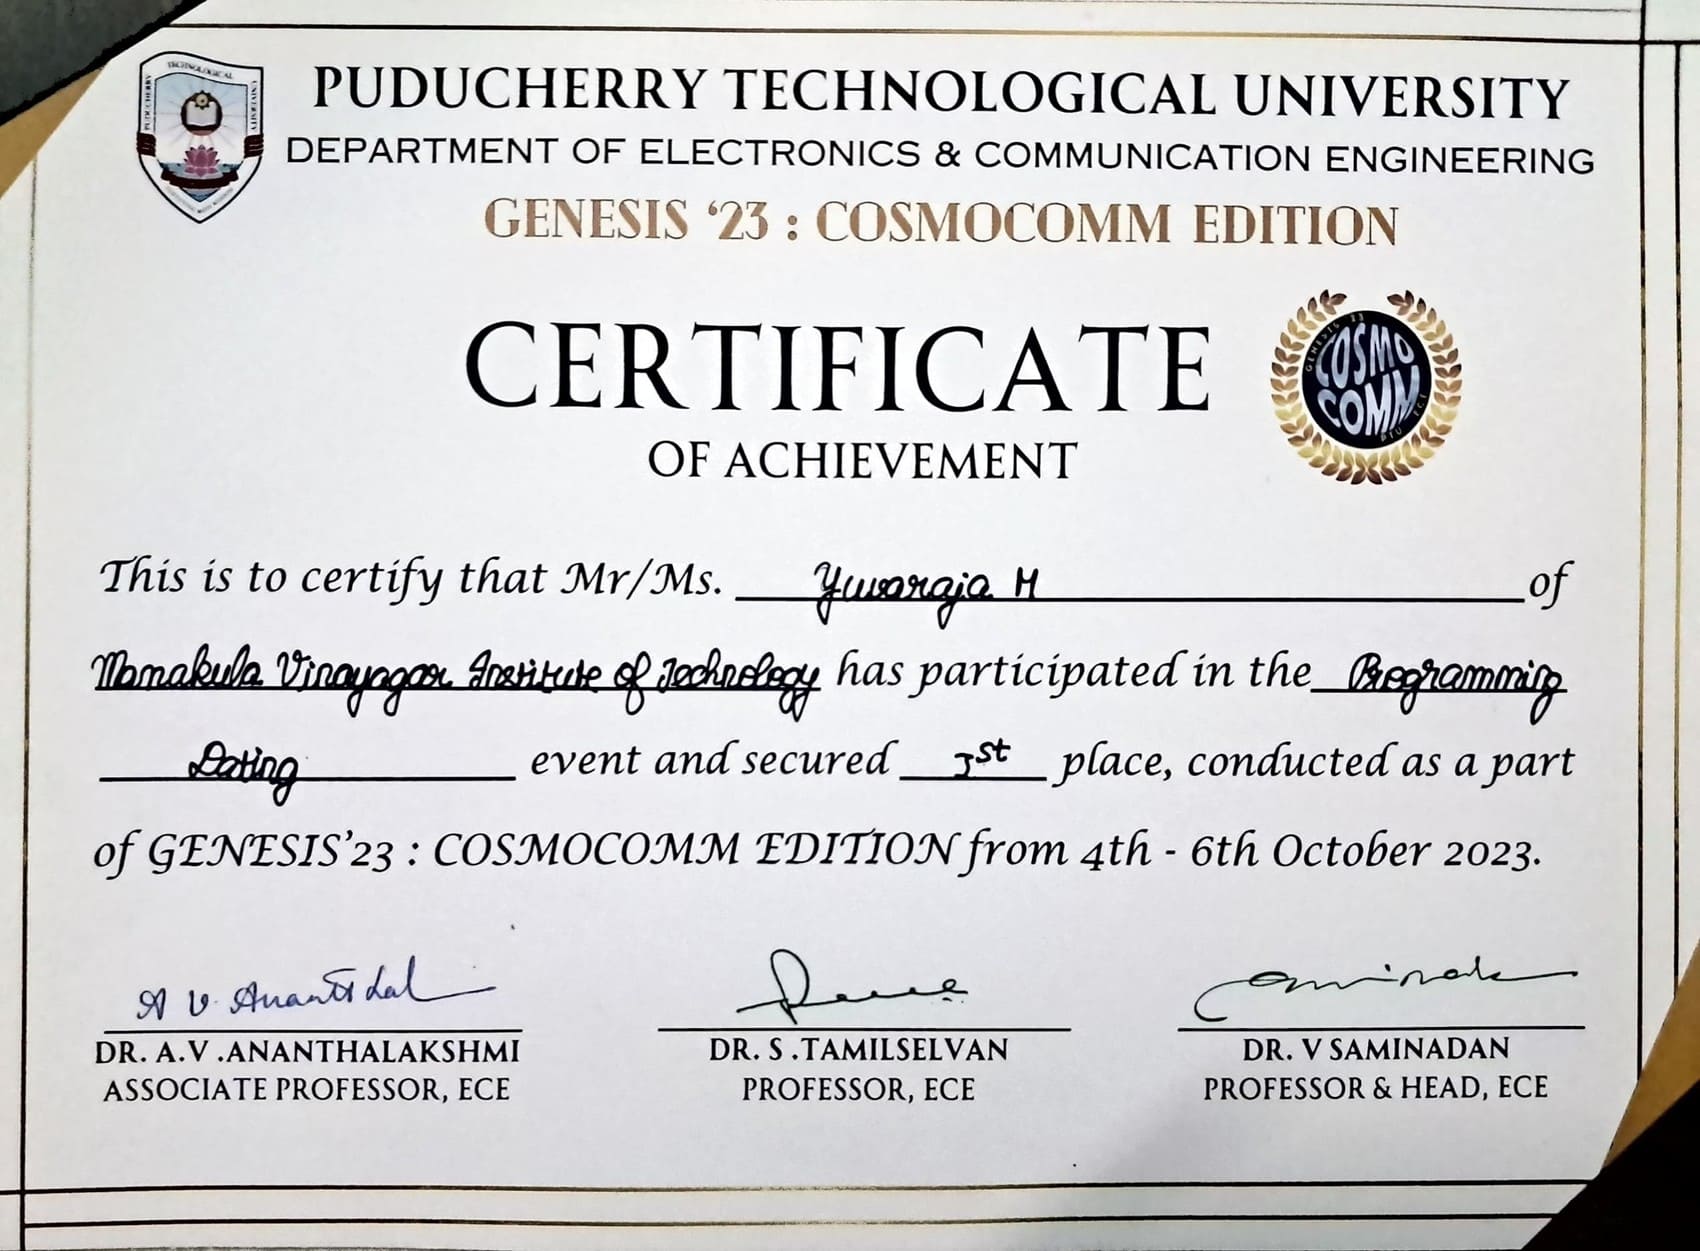 PUDUCHERRY TECHNOLOGICAL UNIVERSITY
DEPARTMENT OF ELECTRONICS & COMMUNICATION ENGINEERING
GENESIS '23 : COSMOCOMM EDITION
CERTIFICATE
OF ACHIEVEMENT
GENESIS 23
COSMO
COMM
PTU ECE
PUDUCHERRY TECHNOLOGICAL UNIVERSITY
This is to certify that Mr/Ms. Yuvaraja M of
Manakula Vinayagar Institute of Technology has participated in the Programming
Dating event and secured 1st place, conducted as a part
of GENESIS'23 : COSMOCOMM EDITION from 4th - 6th October 2023.
DR. A.V .ANANTHALAKSHMI
ASSOCIATE PROFESSOR, ECE
DR. S .TAMILSELVAN
PROFESSOR, ECE
DR. V SAMINADAN
PROFESSOR & HEAD, ECE